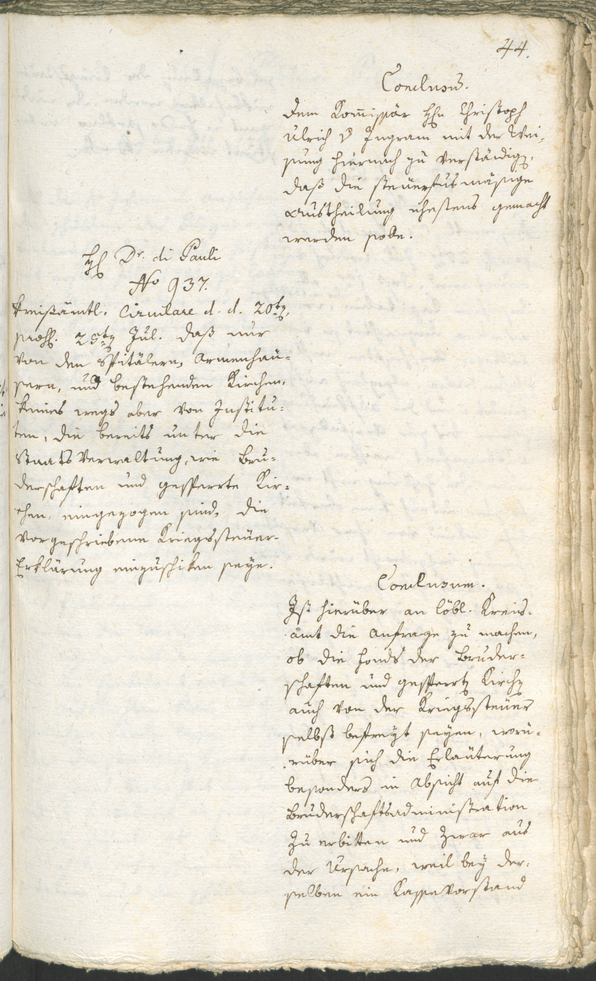 44.
Conclusum.
dem Kommissär H. Christoph
Ulrich v Ingram mit der Wei-
sung hiernach zu verständigen,
daß die steuerfutmäsige
Austheilung ehestens gemacht
werden solle.
H Dr. di Pauli
No 937.
Kreisämtl. Circulare d. d. 20ten
29ten Jul. daß nur
von den Spitälern, Armenhäu-
sern, und bestehenden Kirchen,
keines wegs aber von Institu-
ten, die bereits unter die
Staats Verwaltung, wie Bru-
derschaften und gesperrte Kir-
chen, eingezogen sind, die
vorgeschriebene Kriegssteuer-
Erklärung einzuschiken seye.
Conclusum.
Ist hierüber an löbl. Kreis-
amt die Anfrage zu machen,
ob die Fonds der Bruder-
schaften und gesperrten Kirchen
auch von der Kriegssteuer
selbst befreyt seyen, worü-
rüber sich die Erläuterung
besonders in Absicht auf die
Bruderschaftsadministration
zu erbitten und zwar aus
der Ursache, weil bey der-
selben ein Kassevorstand